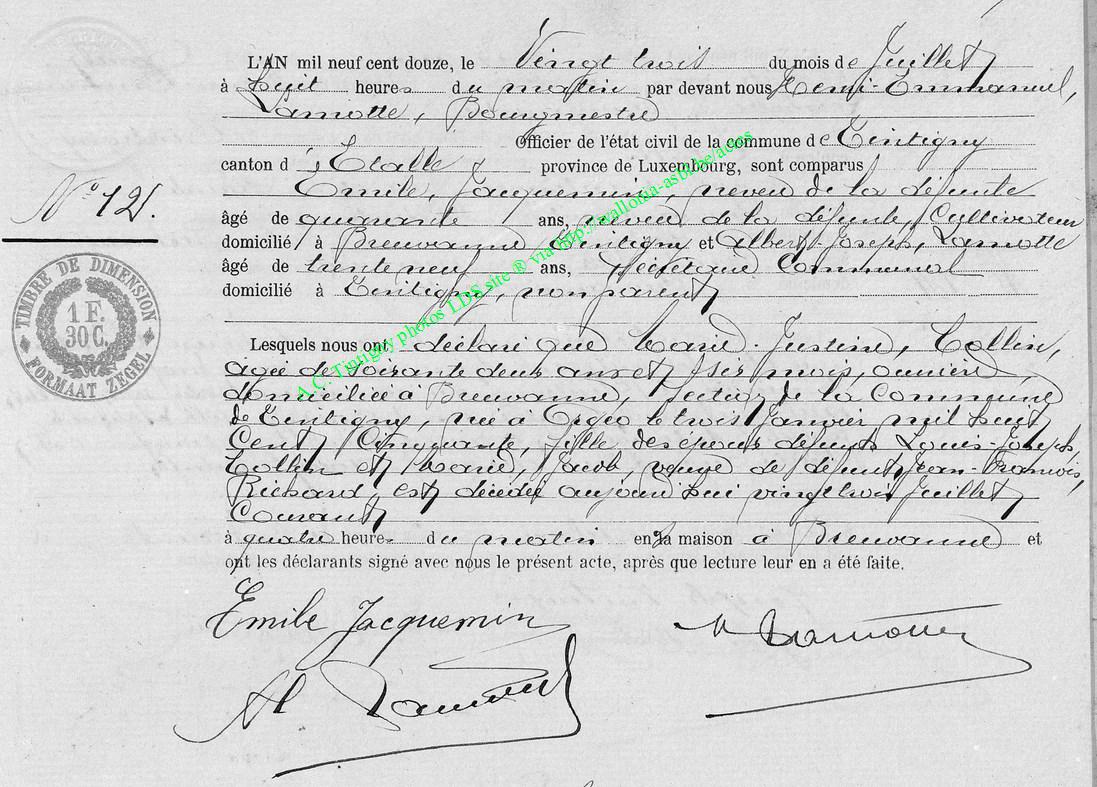 L'AN mil neuf cent douze, le Vingt trois du mois de Juillet
à huit heures du matin par devant nous Henri-Emmanuel,
Lamotte, Bourgmestre
Officier de l'état civil de la commune de Tintigny
canton d'Etalle province de Luxembourg, sont comparus
Emile, Jacquemin, neveu de la défunte
âgé de quarante ans, neveu de la défunte, Cultivateur
domicilié à Breuvanne Tintigny et Albert-Joseph, Lamotte
N° 12.
âgé de trente neuf ans, Secrétaire Communal
domicilié à Tintigny, non parent
TIMBRE DE DIMENSION
1 F. 30 C.
FORMAAT ZEGEL
Lesquels nous ont déclaré que Marie-Justine, Collin,
âgée de soixante deux ans et six mois, ouvrière,
domiciliée à Breuvanne, section de la Commune
de Tintigny, née à Orgeo le trois Janvier mil huit
Cent Cinquante, fille des époux défunts Louis-Joseph,
Collin et Marie, Jacob, veuve de défunt Jean-François,
Richard, est décédée aujourd'hui vingt trois Juillet
Courant
à quatre heures du matin en sa maison à Breuvanne et
ont les déclarants signé avec nous le présent acte, après que lecture leur en a été faite.
Emile Jacquemin
H Lamotte
Al Lamotte
A.C. Tintigny photos LDS site ® via http://wallonia-asbl.be/actes